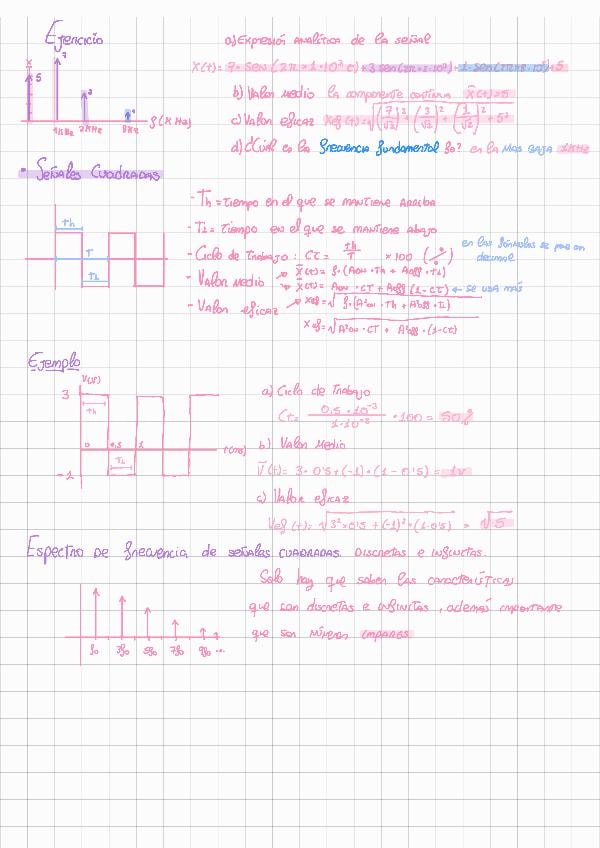 Ejercicio
a) Expresión analítica de la señal
X(t) = 7·sen(2π·1·10³t) + 3·sen(2π·2·10³) + 1·sen(2π·8·10³) + 5
b) Valor Medio la componente continua X̄(t)=5
c) Valor eficaz Xef(t) = √((7/√2)² + (3/√2)² + (1/√2)² + 5²)
d) ¿Cúal es la frecuencia fundamental fo? es la MAS BAJA 1KHz
X
5
7
3
1
1KHz 2KHz 8KHz
f(KHz)
· Señales Cuadradas
Th
T
TL
- Th = Tiempo en el que se mantiene arriba
- TL = Tiempo en el que se mantiene abajo
- Ciclo de Trabajo : CT = Th/T ×100 (%)
en las fórmulas se pone en decimal
- Valor Medio → X̄(t) = f·(Aon·Th + Aoff·TL)
→ X̄(t) = Aon·CT + Aoff(1-CT) ← SE USA MÁS
- Valor eficaz → Xef = √(f·(A²on·Th + A²off·TL))
Xef = √(A²on·CT + A²off·(1-CT))
Ejemplo
V(V)
3
Th
0 0,5 1
t(ms)
TL
-1
a) Ciclo de Trabajo
Ct = 0,5·10⁻³/1·10⁻³ ·100 = 50%
b) Valor Medio
V̄(t) = 3·0'5+(-1)·(1-0'5) = 1V
c) Valor eficaz
Vef(t) = √(3²·0'5 + (-1)²·(1-0'5)) = √5
Espectro de frecuencia de señales cuadradas. Discretas e infinitas.
Solo hay que saber las características
que son discretas e infinitas, además importante
que son números impares
fo 3fo 5fo 7fo 9fo ...